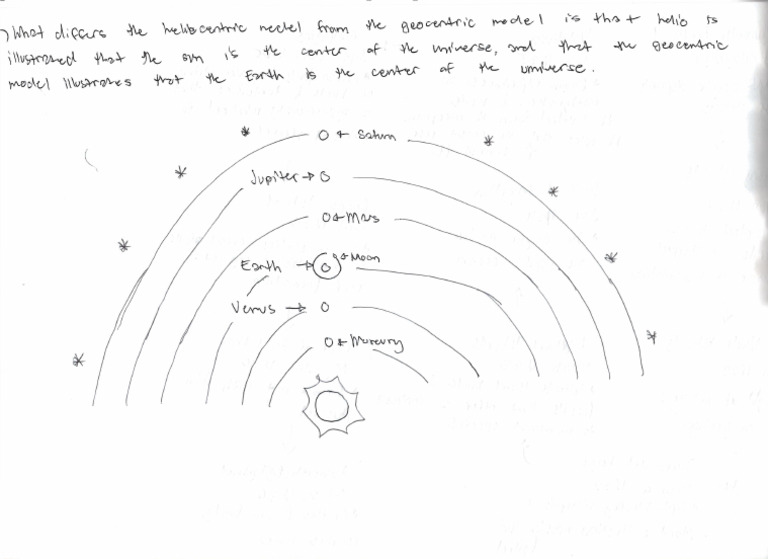 ) What differs the heliocentric model from the geocentric model is that helio is
illustrated that the sun is the center of the universe, and that the geocentric
model illustrates that the Earth is the center of the universe.
Saturn
Jupiter →
Mars
Earth → Moon
Venus →
Mercury